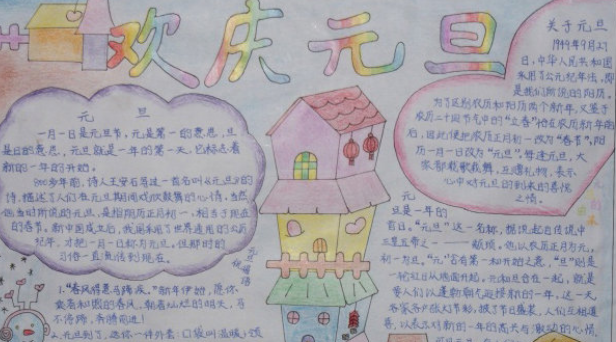 欢庆元旦
元 旦
一月一日是元旦节,元是第一的意思,旦
是日的意思,元旦就是一年的第一天。它标志着
新的一年的开始。
800多年前,诗人王安石写过一首名叫《元旦》的
诗,描述了人们在元旦期间欢欣鼓舞的心情。当然
他当时所说的元旦,是指阴历正月初一,相当于现在
的春节。新中国成立后,我国采用了世界通用的公历
纪年,才把一月一日称为元旦,但那时的
习俗一直流传到现在。
1."春风得意马蹄疾。"新年伊始,愿你
乘着和煦的春风,朝着灿烂的明天,马
不停蹄,奔腾前进!
2.元旦到了,送你一件外套:口袋叫温暖,领
关于元旦
1949年9月27
日,中华人民共和国
采用了公元纪年法,即
是我们所说的阳历。
为了区别农历和阳历两个新年,又鉴于
农历二十四节气中的"立春"恰在农历新年的前
后,因此便把农历正月初一改为"春节",阳
历一月一日改为"元旦"。每逢元旦,大
家都载歌载舞,互赠礼物,表示
心中对元旦的到来的喜悦
之情。
元
旦是一年的
首日。"元旦"这一名称,据说起自传说中
三皇五帝之一——颛顼,他以农历正月为元,
初一为旦。"元"含有第一和开始之意,"旦"则是
一轮红日从地面升起。元和旦合在一起,就是
要人们以蓬勃朝气迎接新的一年。这一天,